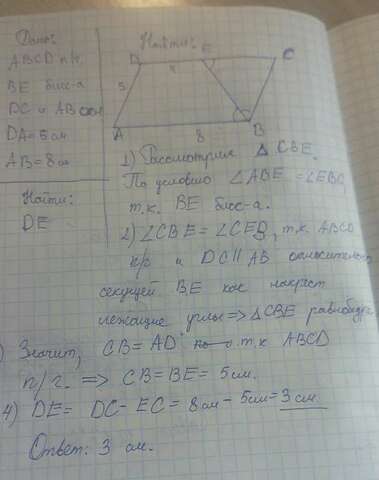 Дано:
ABCD п/г
BE бисс-а
DC и AB
DA=5см
AB=8см
Найти:
DE
Найти:
D E C
5 x
A 8 B
1) Рассмотрим △CBE.
По условию ∠ABE=∠EBC,
т.к. BE бисс-а.
2) ∠CBE=∠CEB, т.к. ABCD
п/г и DC∥AB относительно
секущей BE как накрест
лежащие углы ⇒ △CBE равнобедр
) Значит, CB=AD т.к ABCD
п/г. ⇒ CB=BE=5см.
4) DE= DC-EC=8см-5см=3см
Ответ: 3 см.